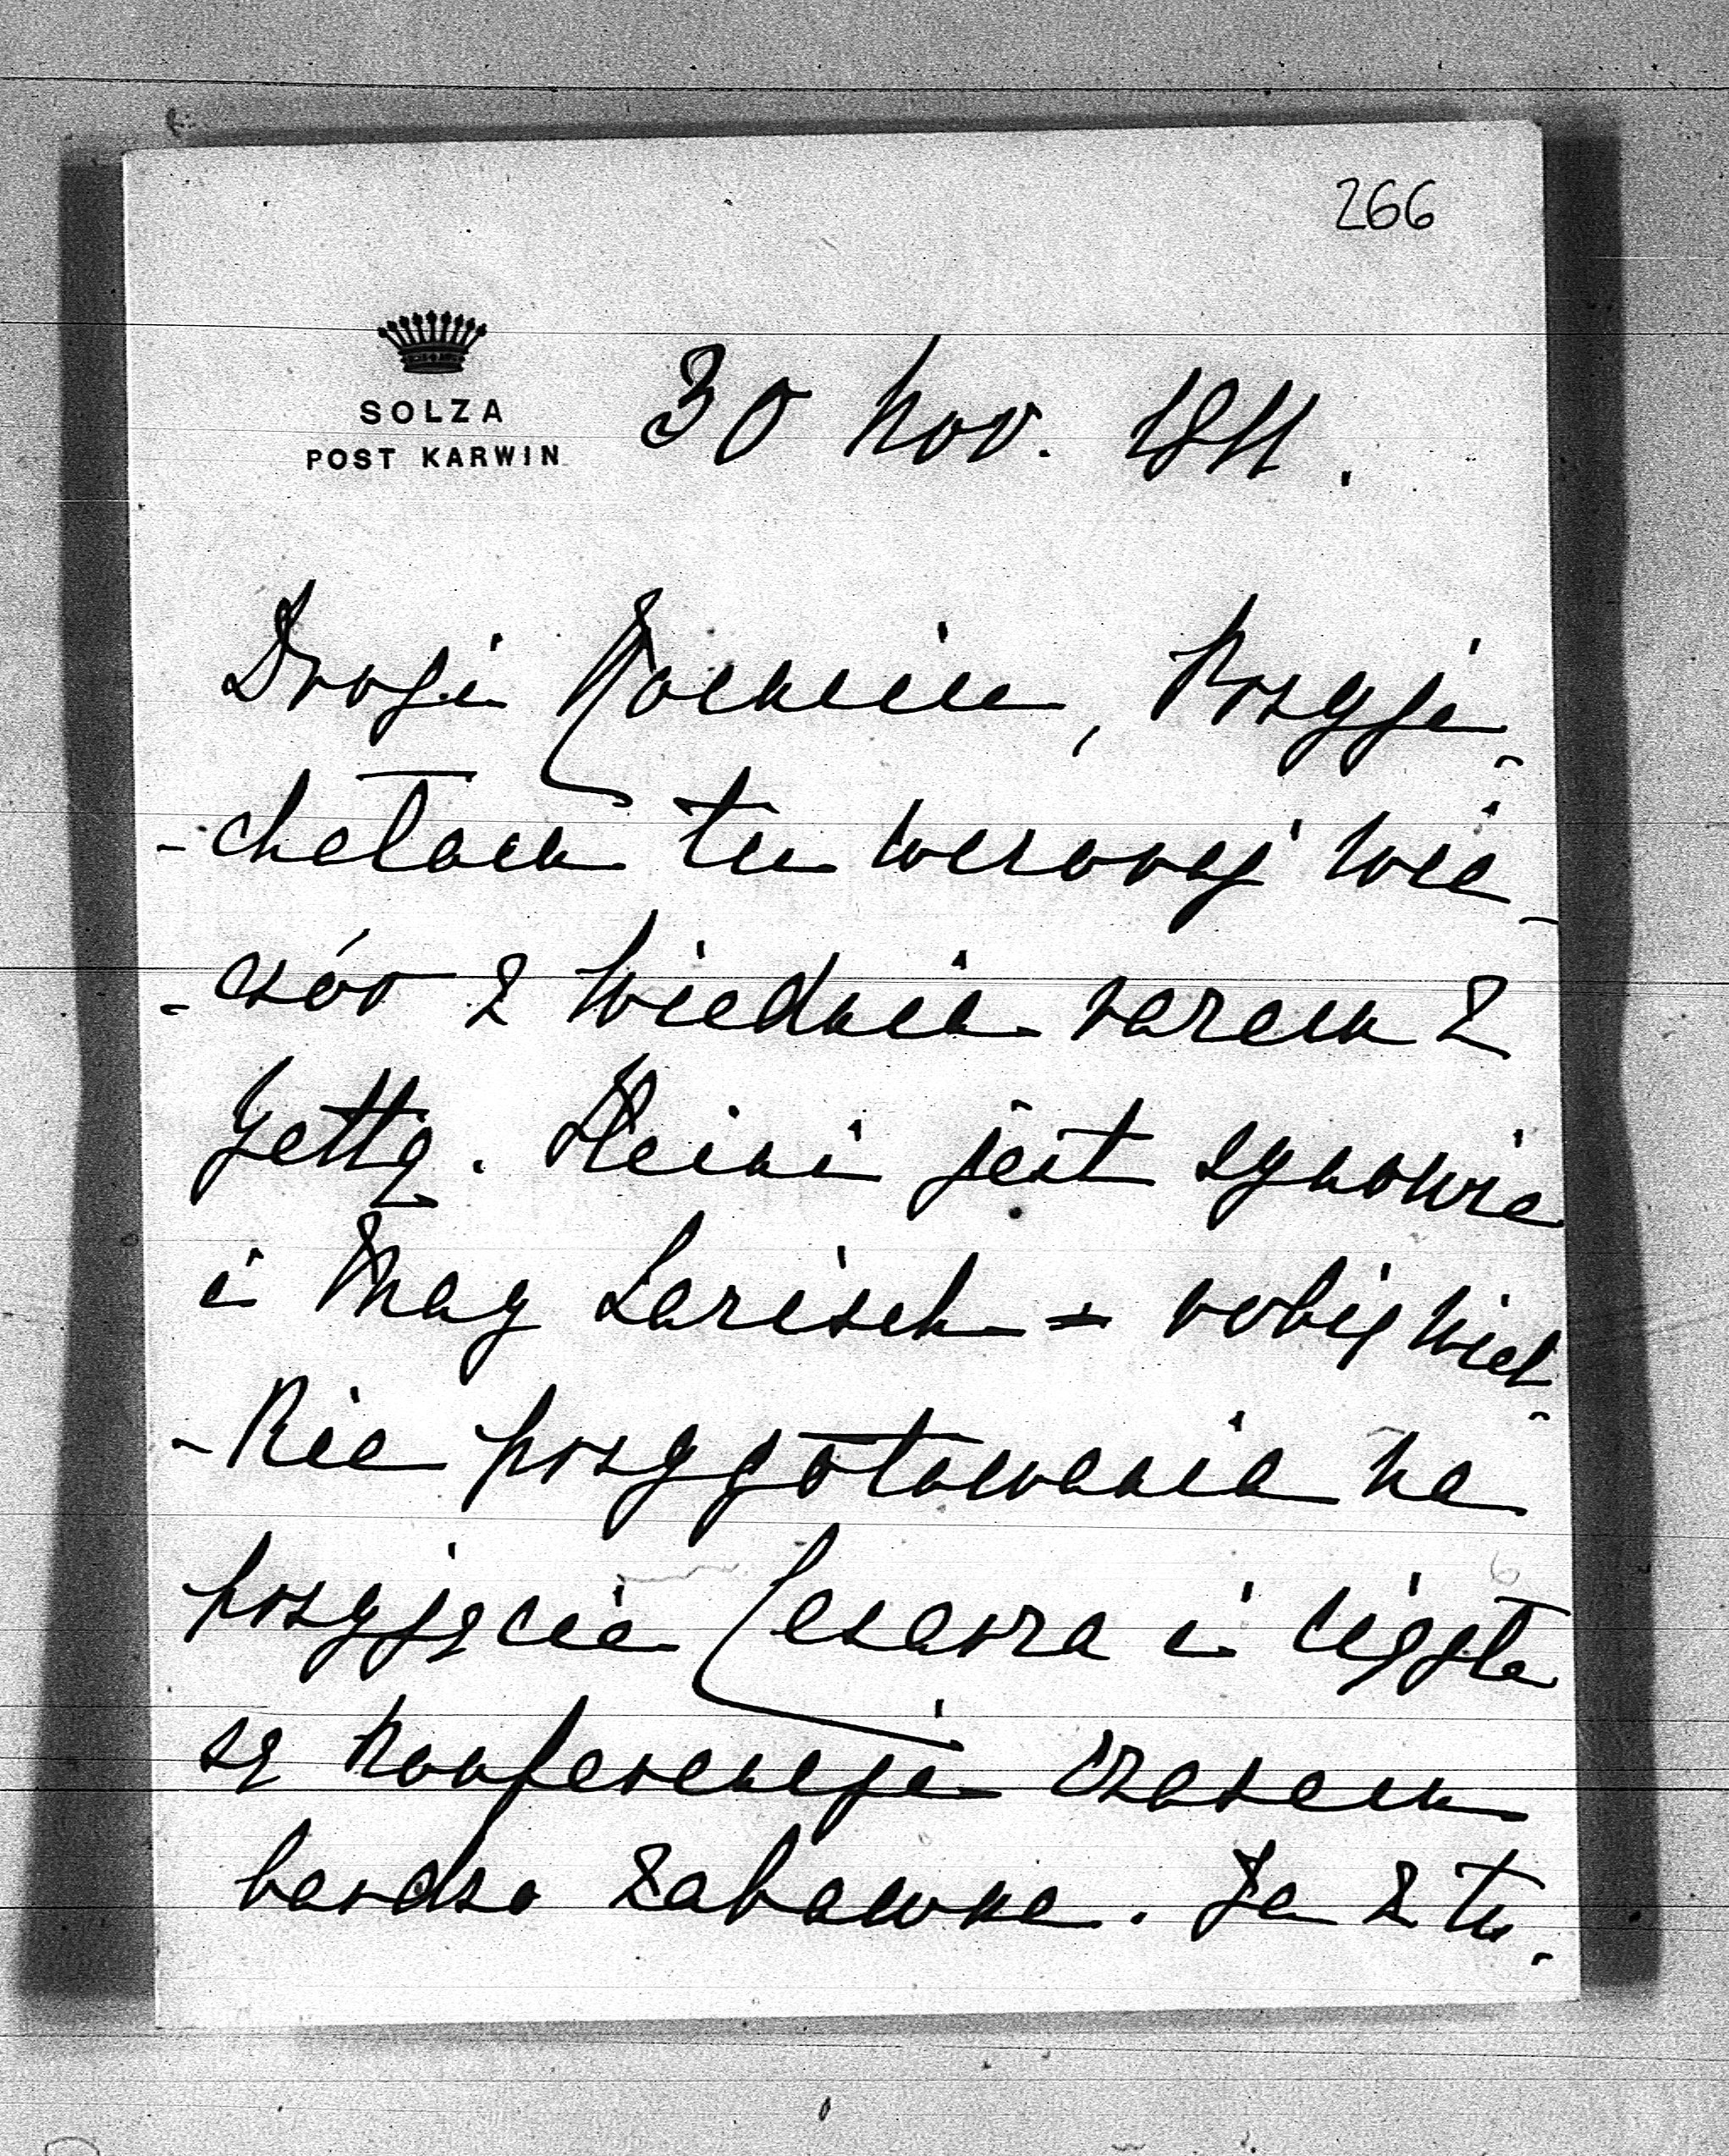 266
SOLZA
POST KARWIN
30 Nov. 1911.
Drogi Romciu, Przyje-
-chałam tu wczoraj wie-
-czór z Wiednia razem z
Yettą. Heini jest synowie
i May Larisch - robią wiel-
-kie przygotowania na
przyjęcie Cesarza i ciągle
są konferencje czasem
bardzo zabawne. Ja z tu-